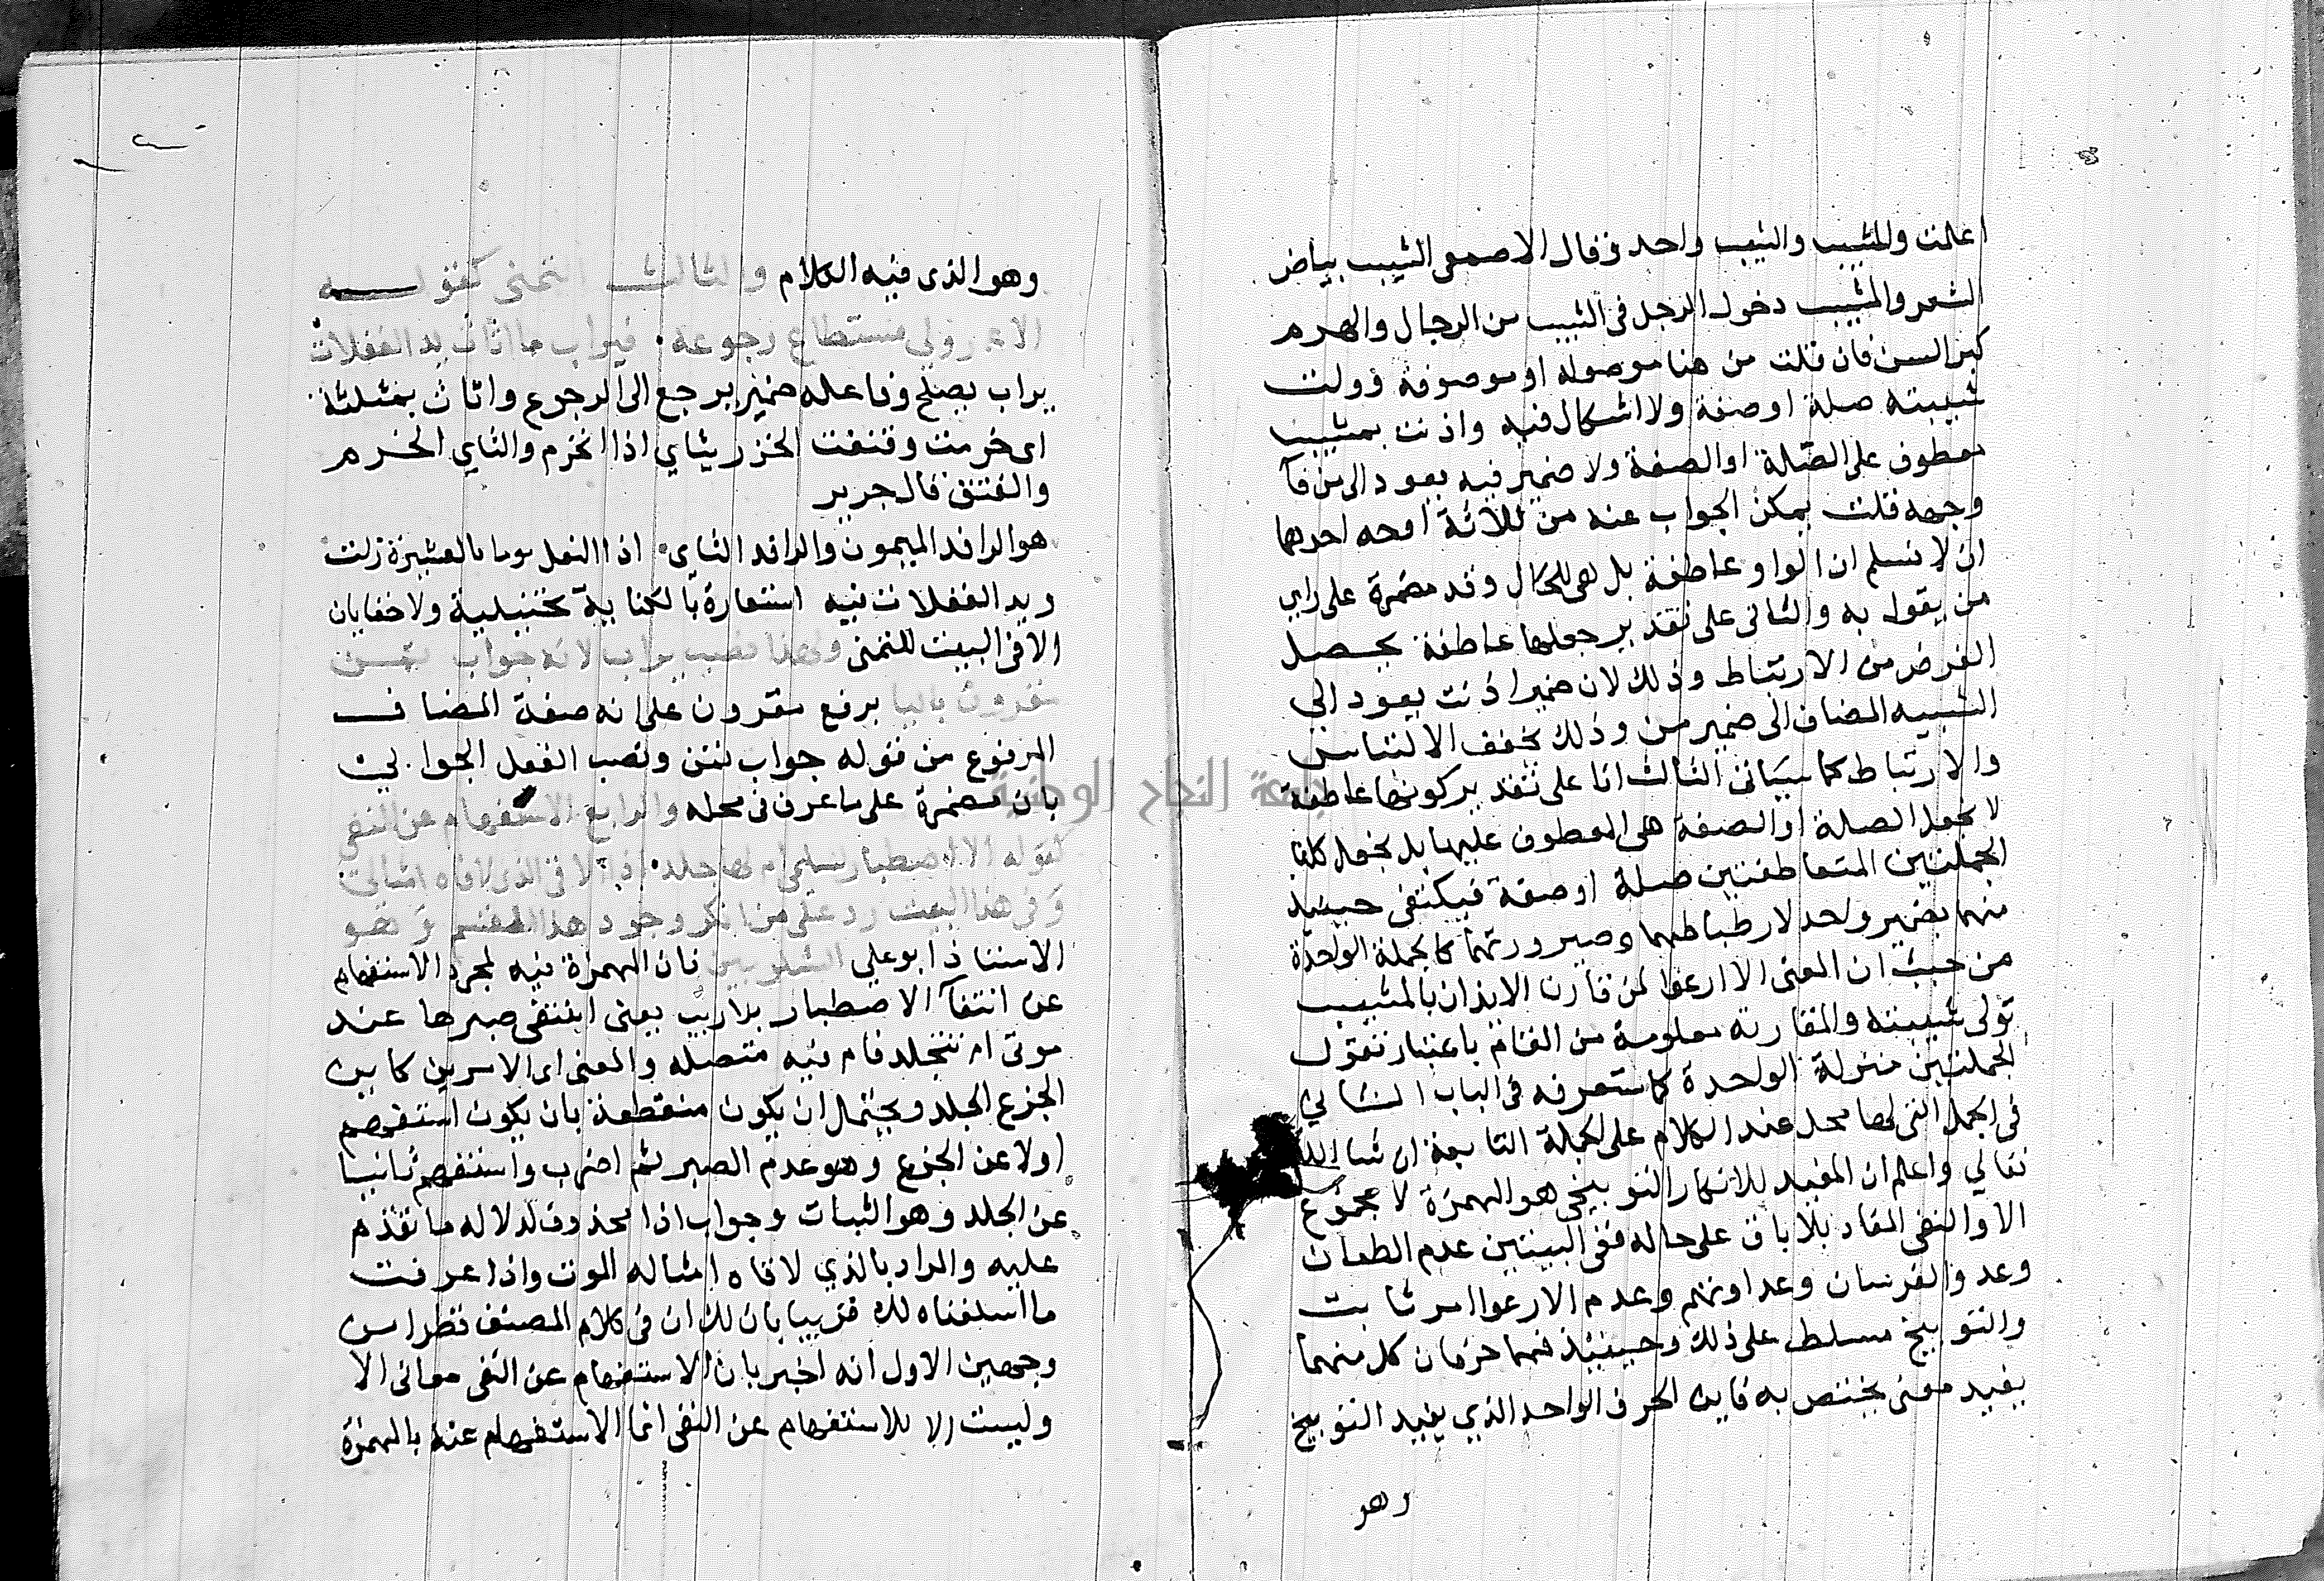 اعلمت والمشيب والشيب واحد وقال الاصمعي الشيب بياض
الشعر والمشيب دخول الرجل في الشيب من الرجال والهرم
كبر السن فان قلت من هنا موصولة او موصوفة وولت
شبيبته صلة او صفة ولا اشكال فيه واذنت بمشيب
معطوف على الصلة او الصفة ولا ضمير فيه يعود الى من فما
وجهه قلت يمكن الجواب عنه من ثلاثة اوجه احدها
ان لا نسلم ان الواو عاطفة بل هي للحال وقد مضمرة على راي
من يقول به والثاني على تقدير جعلها عاطفة يحصل
الغرض من الارتباط وذلك لان ضمير اذنت يعود الى
الشبيبه المضاف الى ضمير من وذلك
والارتباط كما سياتي الثالث انا على تقدير كونها عاطفة
لا نجعل الصلة او الصفة هي المعطوف عليها بل نجعل كلتا
الجملتين المتعاطفتين صلة او صفة فيكتفى حينيذ
منهما بضمير واحد لارطباطهما وصيرورتهما كالجملة الواحدة
من حيث ان المعنى الا ارعوا لمن قارن الايذان بالمشيب
تولى شبيبته والمقارنه معلومة من المقام باعتبار
الجملتين منزلة الواحدة كما ستعرفه في الباب الثاني
في الجمل التي لها محل عند الكلام على الجملة التابعة ان شا الله
تعالى واعلم ان المفيد للانكار التوبيخي هو الهمزة لا مجموع
الا والنفي المفاد بلا باق على حاله ففي البيتين عدم الطعان
وعدو الفرسان وعداوتهم وعدم الارعوا امر ثابت
والتوبيخ مسلط على ذلك وحينيذ فهما حرفان كل منهما
يفيد معنى يختص به فاين الحرف الواحد الذي يفيد التوبيخ
وهو
وهو الذي فيه الكلام والثالث التمني كقوله
الا عمر ولى مستطاع رجوعه فيراب ما اثات يد الغفلات
يراب يصلح وفاعله ضمير يرجع الى الرجوع واثات بمثلثة
اي خرمت وفتقت الخرز يثاي اذا انخرم والثاي الخرم
والفتق قال جرير
هو الوافد الميمون والراتق الثاي اذا النعل يوما بالعشيرة زلت
ويد الغفلات فيه استعارة بالكناية تخييلية ولا خفا بان
الا في البيت للتمني ولهذا نصب يراب لانه جواب تمن
مقرون بالفا برفع مقرون على انه صفة المضاف
المرفوع من قوله جواب تمن ونصب الفعل الجوابي
بان مضمرة على ما عرف في محله والرابع الاستفهام عن النفي
كقوله الا اصطبار لسلمى ام لها جلد اذا الاقي الذي لاقاه امثالي
وفي هذا البيت رد على من انكر وجود هذا القسم وهو
الاستاذ ابو علي الشلوبين فان الهمزة فيه لمجرد الاستفهام
عن انتفا الاصطبار بلا ريب يعني اينتفي صبرها عند
موتي ام تتجلد فام فيه متصلة والمعنى اي الامرين كاين
الجزع الجلد ويحتمل ان يكون منقطعة بان يكون استفهم
اولا عن الجزع وهو عدم الصبر ثم اضرب واستفهم ثانيا
عن الجلد وهو الثبات وجواب اذا محذوف لدلاله ما تقدم
عليه والمراد بالذي لاقاه امثاله الموت واذا عرفت
ما اسلفناه لك قريبا بان لك ان في كلام المصنف نظرا من
وجهين الاول انه اخبر بان الاستفهام عن النفي معاني الا
وليست الا للاستفهام عن النفي انما الاستفهام عنه بالهمزة
جامعة النجاح الوطنية